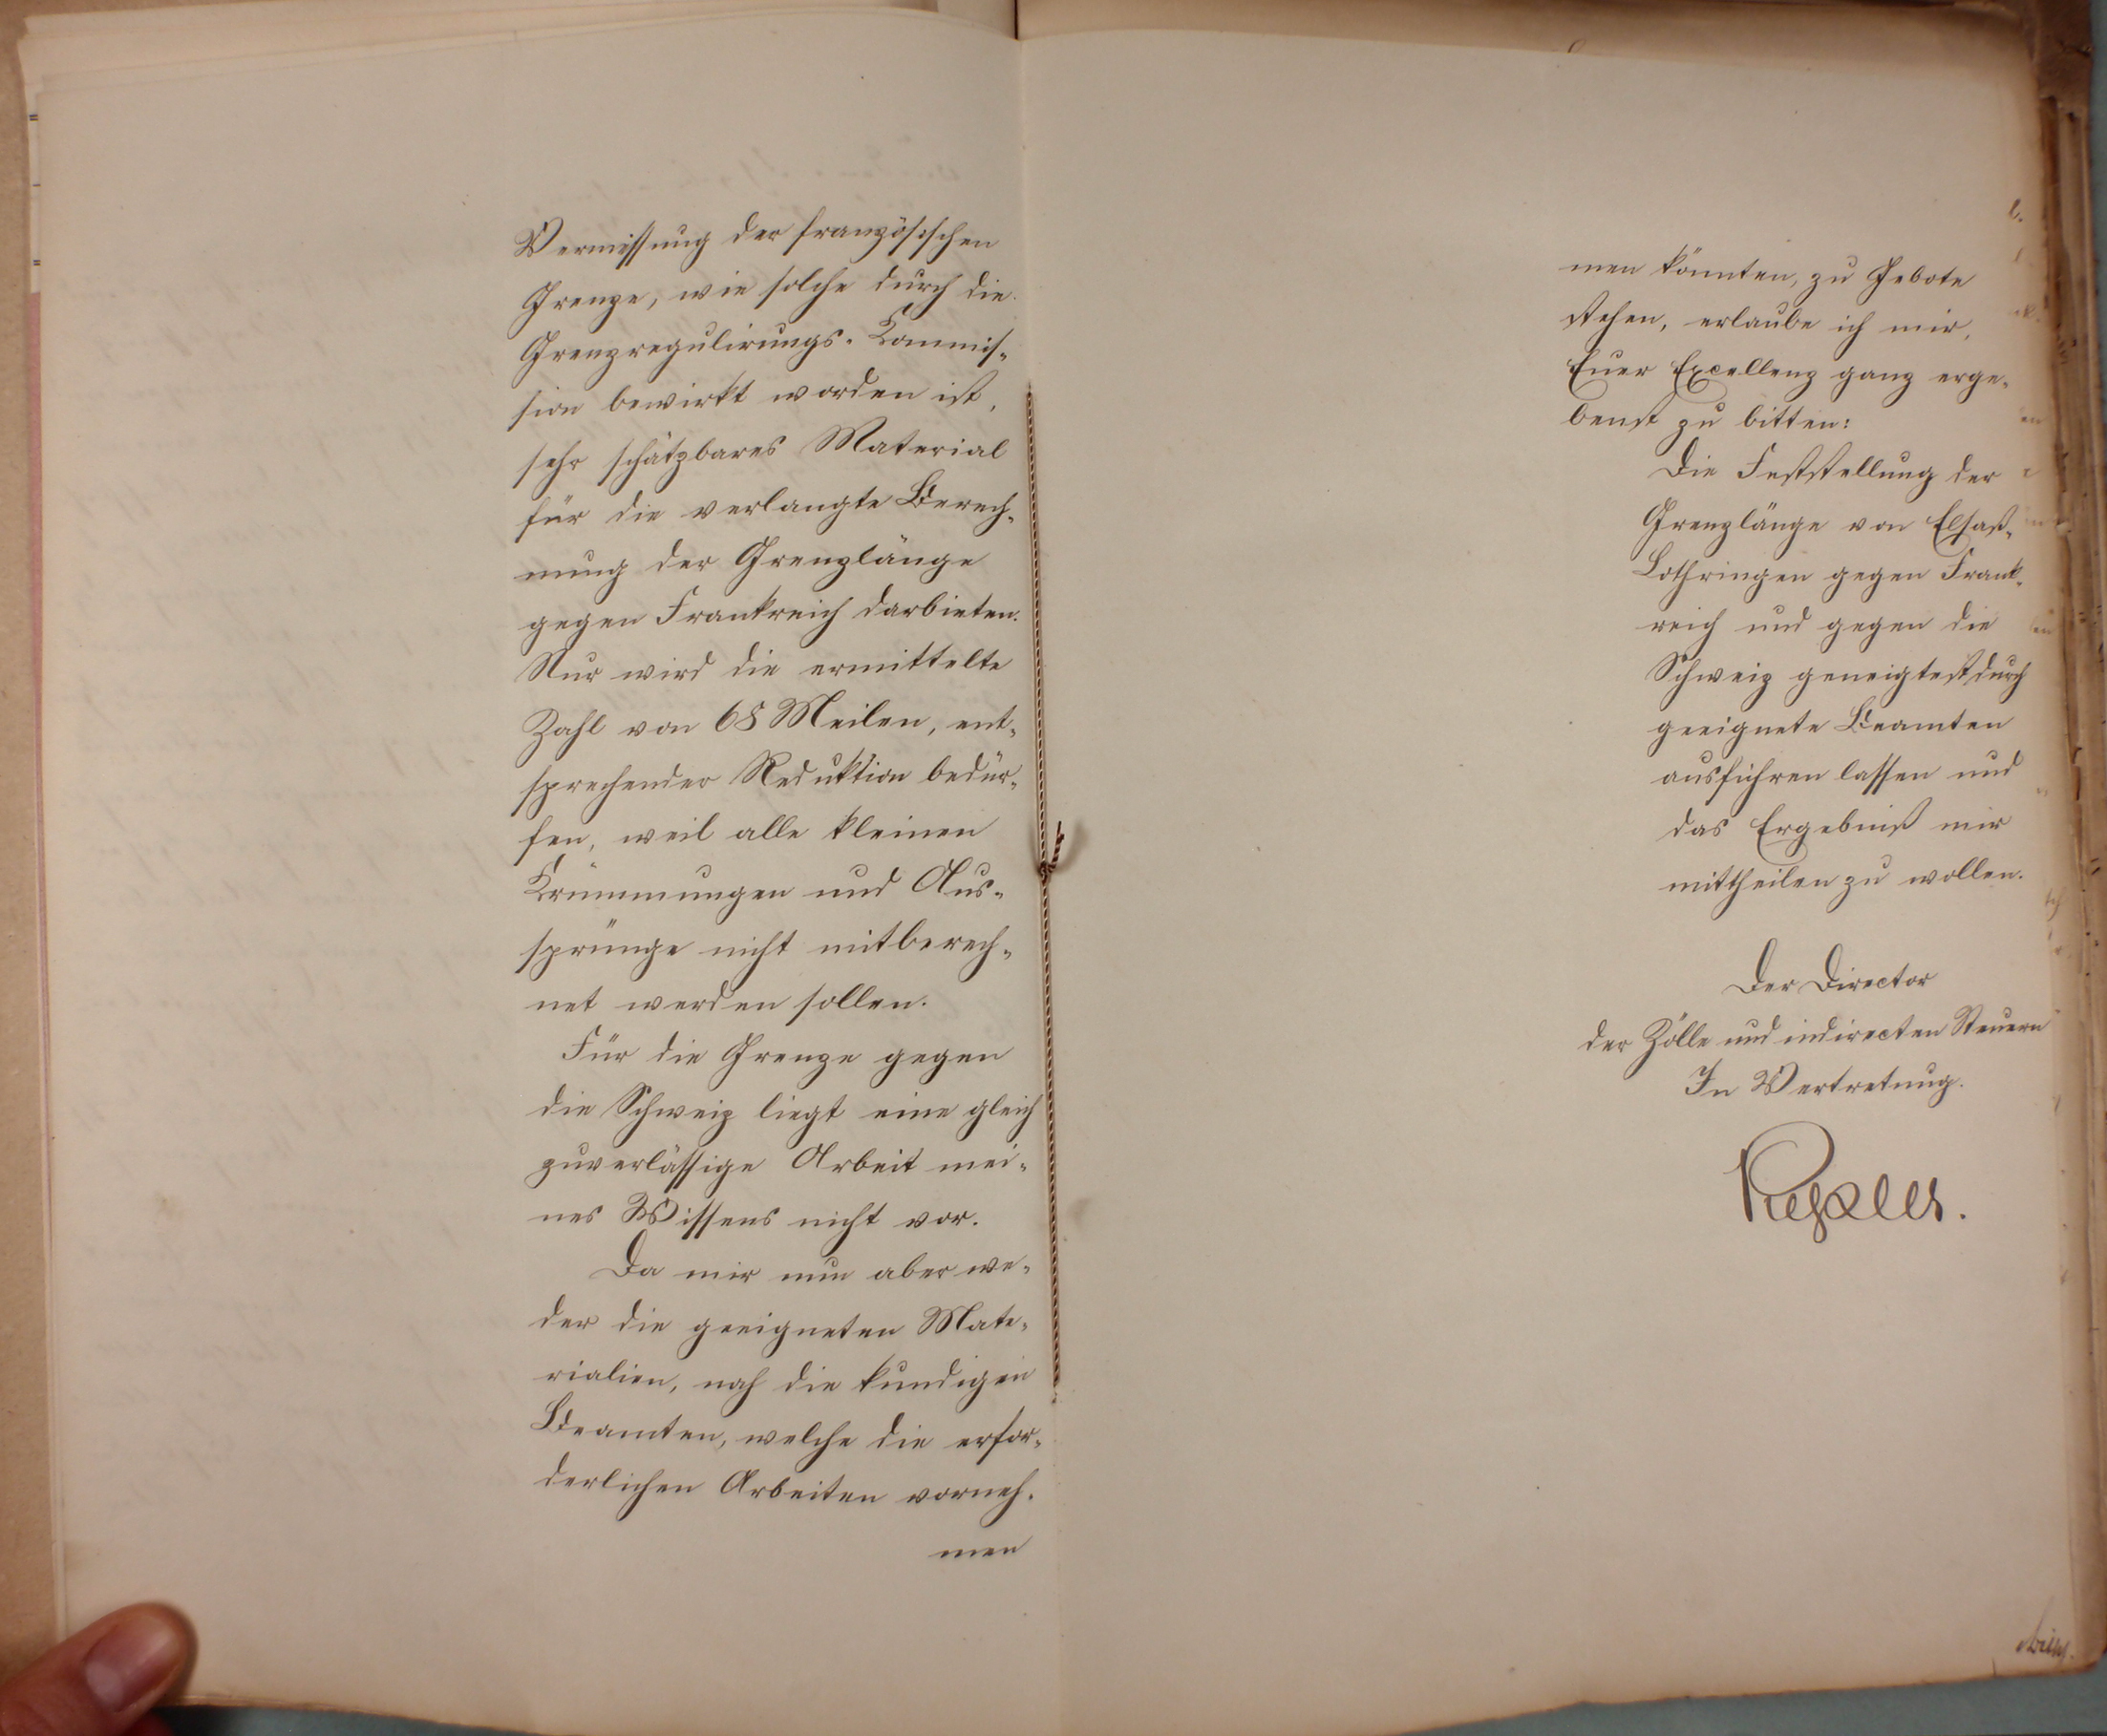 Vermessung der französischen
Grenze, wie solche durch die
Grenzregulirungs-Kommis-
sion bewirkt worden ist,
sehr schätzbares Material
für die verlangte Berech-
nung der Grenzlänge
gegen Frankreich darbieten.
Nur wird die ermittelte
Zahl von 68 Meilen, ent-
sprechender Reduktion bedür-
fen, weil alle kleinen
Krümmungen und Aus-
sprünge nicht mitberech-
net werden sollen.
Für die Grenze gegen
die Schweiz liegt eine gleich
zuverlässige Arbeit mei-
nes Wissens nicht vor.
Da mir nun aber we-
der die geeigneten Mate-
rialien, noch die kundigen
Beamten, welche die erfor-
derlichen Arbeiten vorneh-
men
men könnten, zu Gebote
stehen, erlaube ich mir,
Euer Excellenz ganz erge-
benst zu bitten:
Die Feststellung der
Grenzlänge von Elsaß-
Lothringen gegen Frank-
reich und gegen die
Schweiz geneigtest durch
geeignete Beamten
ausführen lassen und
das Ergebniß mir
mittheilen zu wollen.
Der Director
der Zölle und indirecten Steuern
In Vertretung.